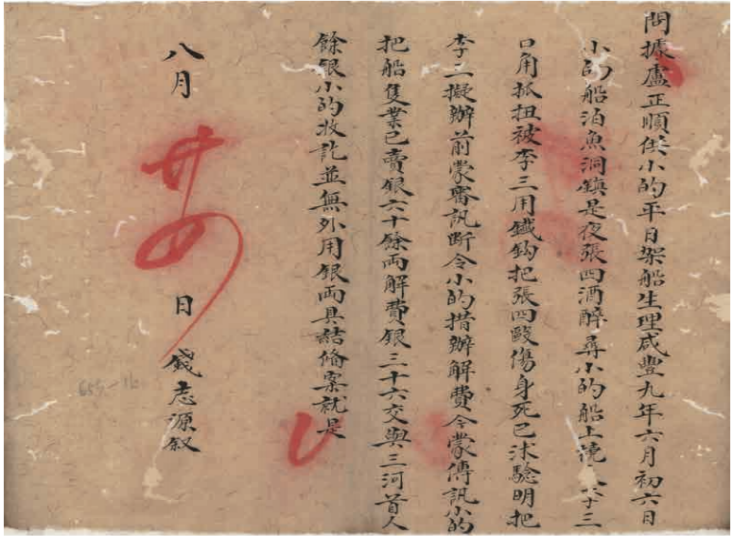 問據盧正順供小的平日架船生理咸豐九年六月初六日
小的船泊魚洞鎮是夜張四酒醉尋小的船上 李三
口角抓扭被李三用鐵鈎把張四毆傷身死已沐驗明把
李二擬辦前蒙審訊斷令小的措辦解費今蒙傳訊小的
把船隻業已賣銀六十餘兩解費銀三十六交與三河首人
餘銀小的收訖並無外用銀兩具結備案就是
八月 廿四 日 錢志源叙
655-16